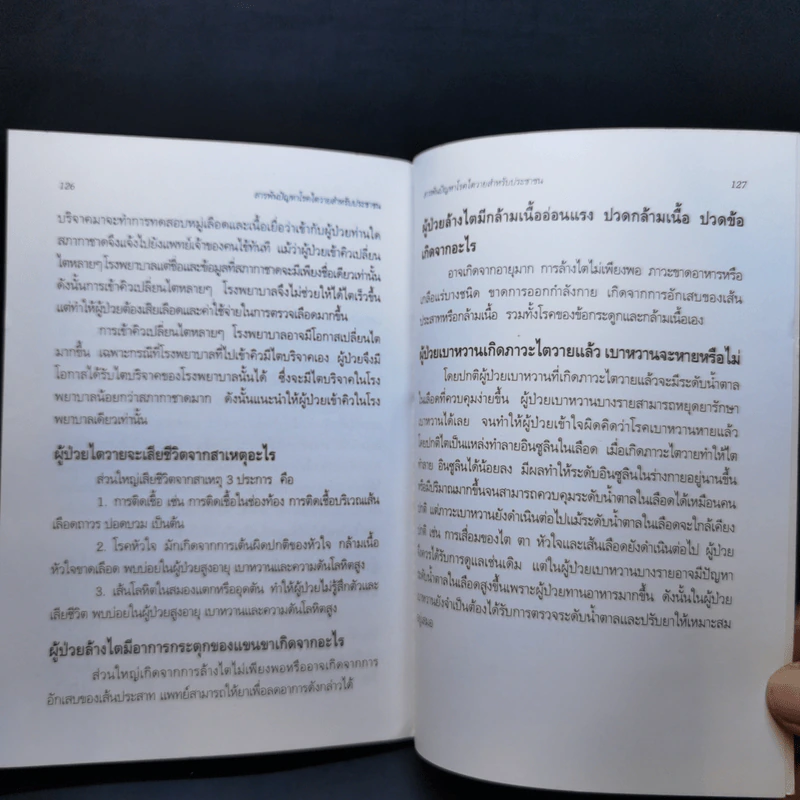 126
สารพันปัญหาโรคไตวายสำหรับประชาชน
บริจาคมาจะทำการทดสอบหมู่เลือดและเนื้อเยื่อว่าเข้ากับผู้ป่วยท่านใด
สภากาชาดจึงแจ้งไปยังแพทย์เจ้าของคนไข้ทันที แม้ว่าผู้ป่วยเข้าคิวเปลี่ยน
ไตหลายๆ โรงพยาบาลแต่ชื่อและข้อมูลที่สภากาชาดจะมีเพียงชื่อเดียวเท่านั้น
ดังนั้นการเข้าคิวเปลี่ยนไตหลายๆ โรงพยาบาลจึงไม่ช่วยให้ได้ไตเร็วขึ้น
แต่ทำให้ผู้ป่วยต้องเสียเลือดและค่าใช้จ่ายในการตรวจเลือดมากขึ้น
การเข้าคิวเปลี่ยนไตหลายๆ โรงพยาบาลอาจมีโอกาสเปลี่ยนไต
มากขึ้น เฉพาะกรณีที่โรงพยาบาลที่ไปเข้าคิวมีไตบริจาคเอง ผู้ป่วยจึงมี
โอกาสได้รับไตบริจาคของโรงพยาบาลนั้นได้ ซึ่งจะมีไตบริจาคในโรง
พยาบาลน้อยกว่าสภากาชาดมาก ดังนั้นแนะนำให้ผู้ป่วยเข้าคิวในโรง
พยาบาลเดียวเท่านั้น
ผู้ป่วยไตวายจะเสียชีวิตจากสาเหตุอะไร
ส่วนใหญ่เสียชีวิตจากสาเหตุ 3 ประการ คือ
1. การติดเชื้อ เช่น การติดเชื้อในช่องท้อง การติดเชื้อบริเวณเส้น
เลือดถาวร ปอดบวม เป็นต้น
2. โรคหัวใจ มักเกิดจากการเต้นผิดปกติของหัวใจ กล้ามเนื้อ
หัวใจขาดเลือด พบบ่อยในผู้ป่วยสูงอายุ เบาหวานและความดันโลหิตสูง
3. เส้นโลหิตในสมองแตกหรืออุดตัน ทำให้ผู้ป่วยไม่รู้สึกตัวและ
เสียชีวิต พบบ่อยในผู้ป่วยสูงอายุ เบาหวานและความดันโลหิตสูง
ผู้ป่วยล้างไตมีอาการกระตุกของแขนขาเกิดจากอะไร
ส่วนใหญ่เกิดจากการล้างไตไม่เพียงพอหรืออาจเกิดจากการ
อักเสบของเส้นประสาท แพทย์สามารถให้ยาเพื่อลดอาการดังกล่าวได้
สารพันปัญหาโรคไตวายสำหรับประชาชน
127
ผู้ป่วยล้างไตมีกล้ามเนื้ออ่อนแรง ปวดกล้ามเนื้อ ปวดข้อ
เกิดจากอะไร
อาจเกิดจากอายุมาก การล้างไตไม่เพียงพอ ภาวะขาดอาหารหรือ
เกลือแร่บางชนิด ขาดการออกกำลังกาย เกิดจากการอักเสบของเส้น
ประสาทหรือกล้ามเนื้อ รวมทั้งโรคของข้อกระดูกและกล้ามเนื้อเอง
ผู้ป่วยเบาหวานเกิดภาวะไตวายแล้ว เบาหวานจะหายหรือไม่
โดยปกติผู้ป่วยเบาหวานที่เกิดภาวะไตวายแล้วจะมีระดับน้ำตาล
ในเลือดที่ควบคุมง่ายขึ้น ผู้ป่วยเบาหวานบางรายสามารถหยุดยารักษา
เบาหวานได้เลย จนทำให้ผู้ป่วยเข้าใจผิดคิดว่าโรคเบาหวานหายแล้ว
โดยปกติไตเป็นแหล่งทำลายอินซูลินในเลือด เมื่อเกิดภาวะไตวายทำให้ไต
ทำลาย อินซูลินได้น้อยลง มีผลทำให้ระดับอินซูลินในร่างกายอยู่นานขึ้น
หรือมีปริมาณมากขึ้นจนสามารถควบคุมระดับน้ำตาลในเลือดได้เหมือนคน
ปกติ แต่ภาวะเบาหวานยังดำเนินต่อไปแม้ระดับน้ำตาลในเลือดจะใกล้เคียง
ปกติ เช่น การเสื่อมของไต ตา หัวใจและเส้นเลือดยังดำเนินต่อไป ผู้ป่วย
ควรได้รับการดูแลเช่นเดิม แต่ในผู้ป่วยเบาหวานบางรายอาจมีปัญหา
ระดับน้ำตาลในเลือดสูงขึ้นเพราะผู้ป่วยทานอาหารมากขึ้น ดังนั้นในผู้ป่วย
เบาหวานยังจำเป็นต้องได้รับการตรวจระดับน้ำตาลและปรับยาให้เหมาะสม
เสมอ